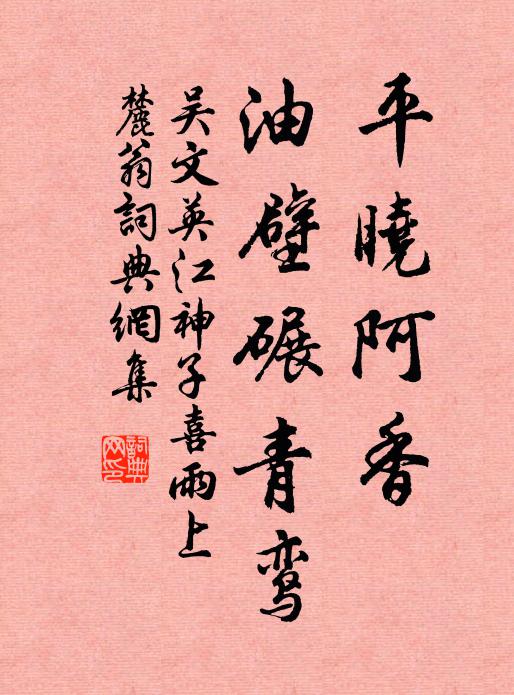 平曉阿香
油壁碾青鸾
吴文英江神子喜雨上
麓翁詞典網集
詞典网印